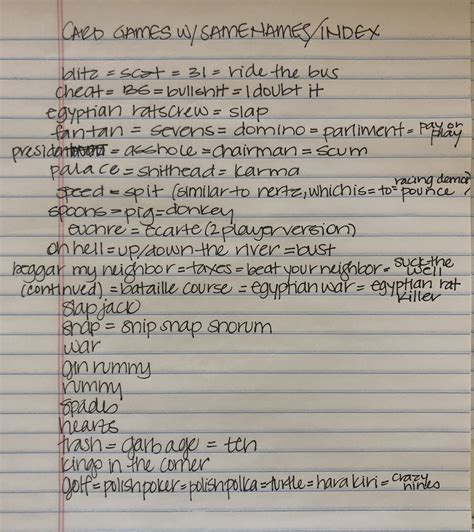 CARD GAMES W/ SAME NAMES/INDEX
blitz = scat = 31 = ride the bus
cheat = BS = bullshit = I doubt it
egyptian ratscrew = slap
fan tan = sevens = domino = parliment = pay or play
president = asshole = chairman = scum
palace = shithead = karma
speed = spit (similar to nertz, which is = to = pounce racing demon)
spoons = pig = donkey
euchre = ecarte (2 player version)
oh hell = up/down the river = bust
beggar my neighbor = taxes = beat your neighbor = suck the well
(continued) = bataille course = egyptian war = egyptian rat killer
slap jack
snap = snip snap snorum
war
gin rummy
rummy
spades
hearts
trash = garbage = ten
kings in the corner
golf = polish poker = polish polka = turtle = hara kiri = crazy nines